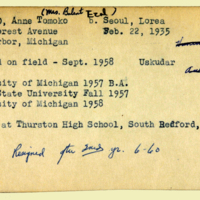 (Mrs. Bulent
, Anne Tomoko b. Seoul, Lorea
orest Avenue Feb. 22, 1935
rbor, Michigan
d on field - Sept. 1958 Uskudar
sity of Michigan 1957 B.A.
State University Fall 1957
sity of Michigan 1958
at Thurston High School, South Redford,
Resigned after 2nd yr. 6-60